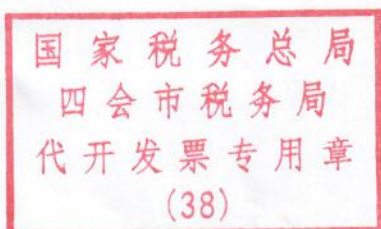 国家税务总局
四会市税务局
代开发票专用章
(38)